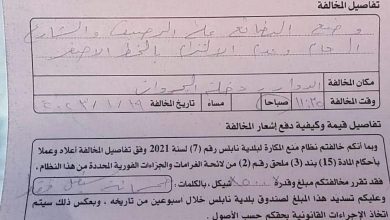 تفاصيل المخالفة
وضع البضائع على الرصيف والشارع
العام وعدم الالتزام بالخط الاصفر
مكان المخالفة الدوار - دخلة
وقت المخالفة ١١:٢٥ صباحا مساء تاريخ المخالفة ٢٠٢٣/١/١٩
تفاصيل قيمة وكيفية دفع إشعار المخالفة
وبما أنكم خالفتم نظام منع المكارة لبلدية نابلس رقم (7) لسنة 2021 وفق تفاصيل المخالفة أعلاه وعملا
بأحكام المادة (15) بند (3) ملحق رقم (2) من لائحة الغرامات والجزاءات الفورية المحددة من هذا النظام ،
فقد تقرر مخالفتكم مبلغ وقدره شيكل ، بالكلمات :
عليكم تسديد هذا المبلغ لصندوق بلدية نابلس خلال اسبوعين من تاريخه ، وبعكس ذلك سيتم
اتخاذ الإجراءات القانونية بحقكم حسب الأصول .